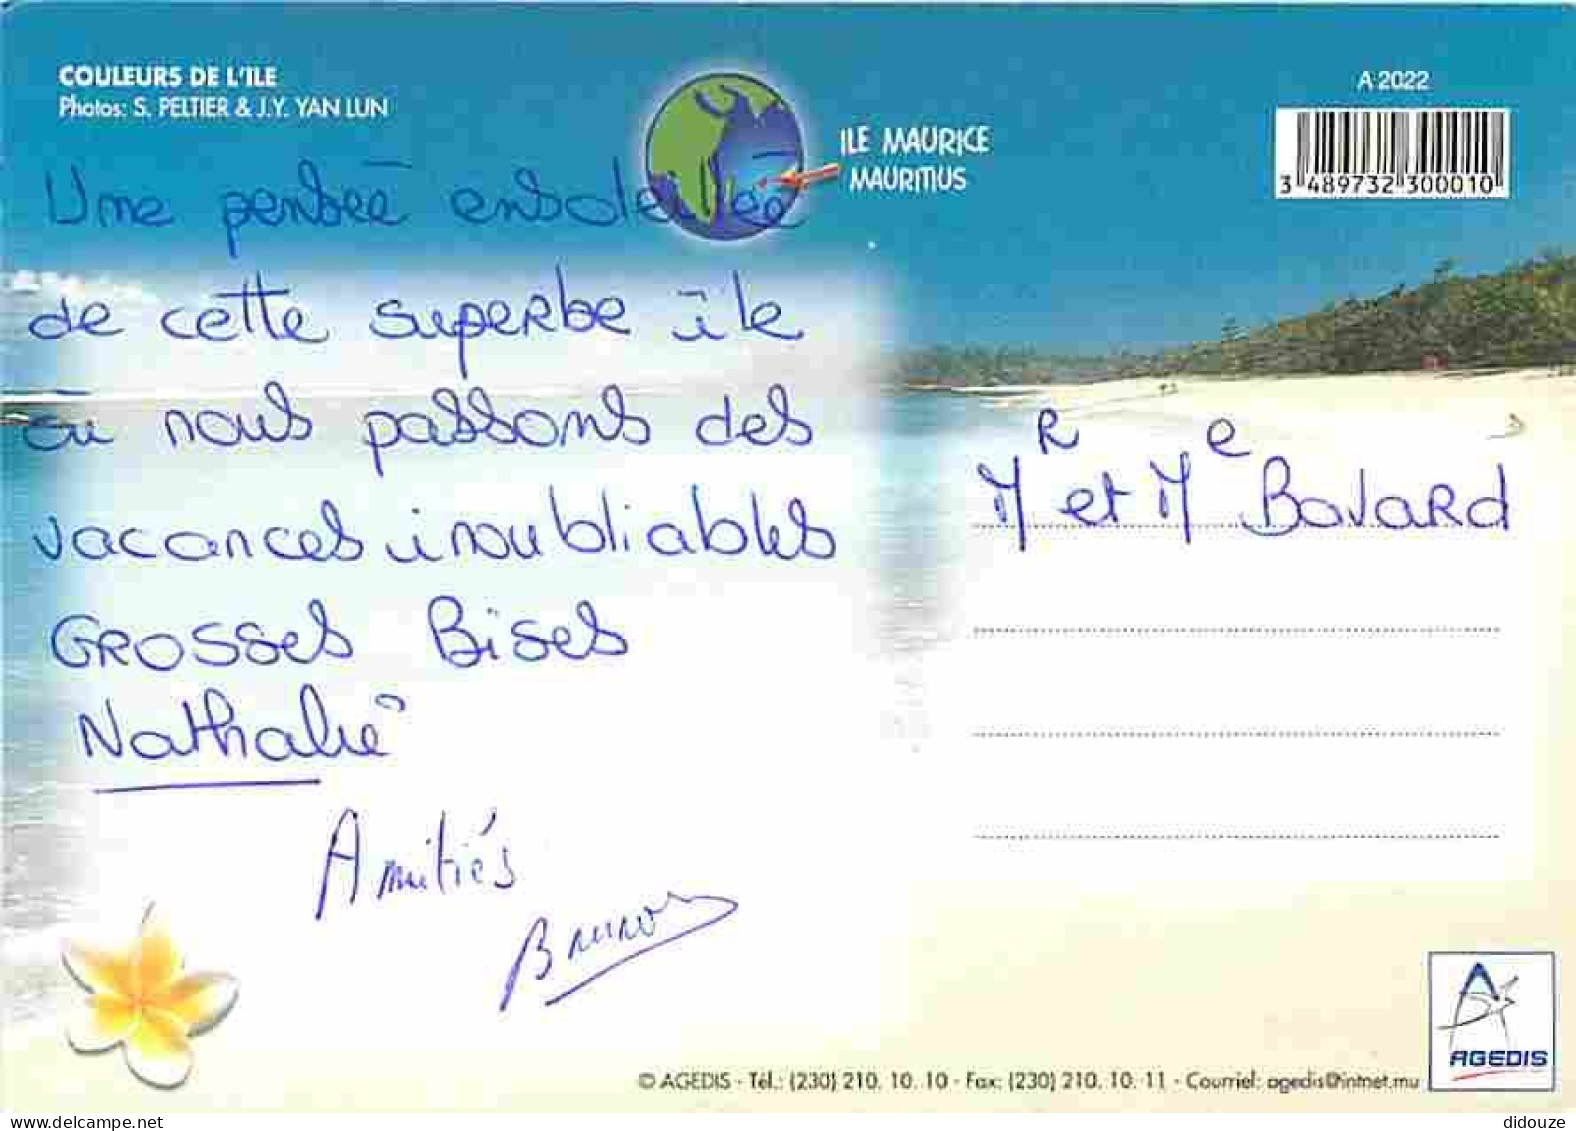 COULEURS DE L'ILE
Photos: S. PELTIER & J.Y. YAN LUN
ILE MAURICE
MAURITIUS
A 2022
3 489732 300010
Une pensée ensoleillée
de cette superbe île
où nous passons des
vacances inoubliables
GROSSES Bises
Nathalie
Amitiés
Bruno
MR et Me Bovard
© AGEDIS - Tél.: (230) 210. 10. 10 - Fax: (230) 210. 10. 11 - Courriel: agedis@intnet.mu
AGEDIS
didouze